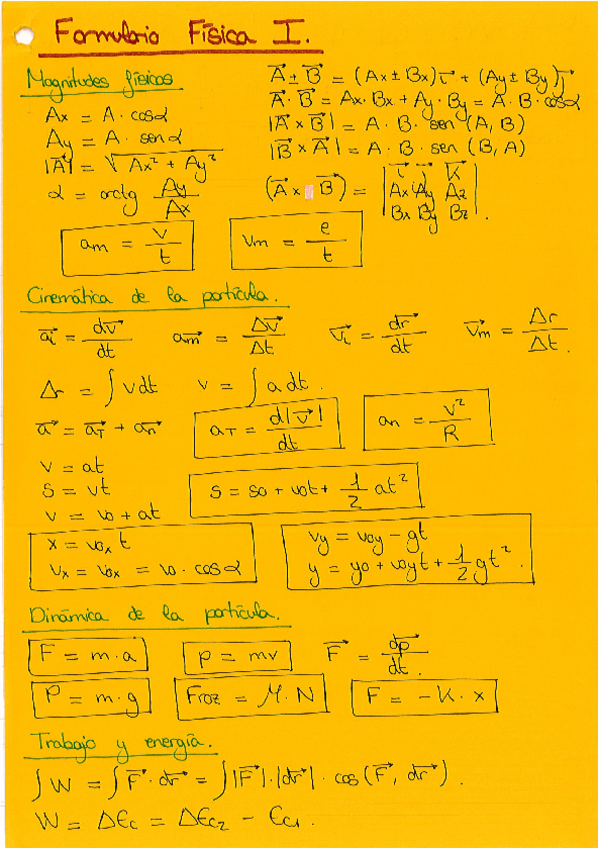 Formulario Física I.
Magnitudes físicas
Ax = A · cosα
Ay = A · senα
|A⃗| = √(Ax² + Ay²)
α = arctg Ay/Ax
A⃗ ± B⃗ = (Ax ± Bx)i⃗ + (Ay ± By)j⃗
A⃗ · B⃗ = Ax · Bx + Ay · By = A · B · cosα
|A⃗ x B⃗| = A · B · sen (A, B)
|B⃗ x A⃗| = A · B · sen (B, A)
(A⃗ x B⃗) = | i⃗ j⃗ k⃗ |
| Ax Ay Az |
| Bx By Bz | .
am = v/t
Vm = e/t
Cinemática de la partícula.
a⃗i = dv⃗/dt a⃗m = Δv⃗/Δt v⃗i = dr⃗/dt v⃗m = Δr/Δt .
Δr = ∫ v dt v = ∫ a dt .
a⃗ = a⃗T + a⃗n aT = d|v⃗|/dt an = v²/R
v = at
s = vt
v = vo + at
s = so + vot + 1/2 at²
x = vox t
vx = vox = vo · cosα
vy = voy - gt
y = yo + voyt + 1/2 gt² .
Dinámica de la partícula.
F = m · a p = mv F⃗ = dp⃗/dt .
P = m · g Froz = μ · N F = - K · x
Trabajo y energía.
∫ W = ∫ F⃗ · dr⃗ = ∫ |F⃗| · |dr⃗| · cos (F⃗, dr⃗) .
W = ΔEc = ΔEc2 - Ec1 .